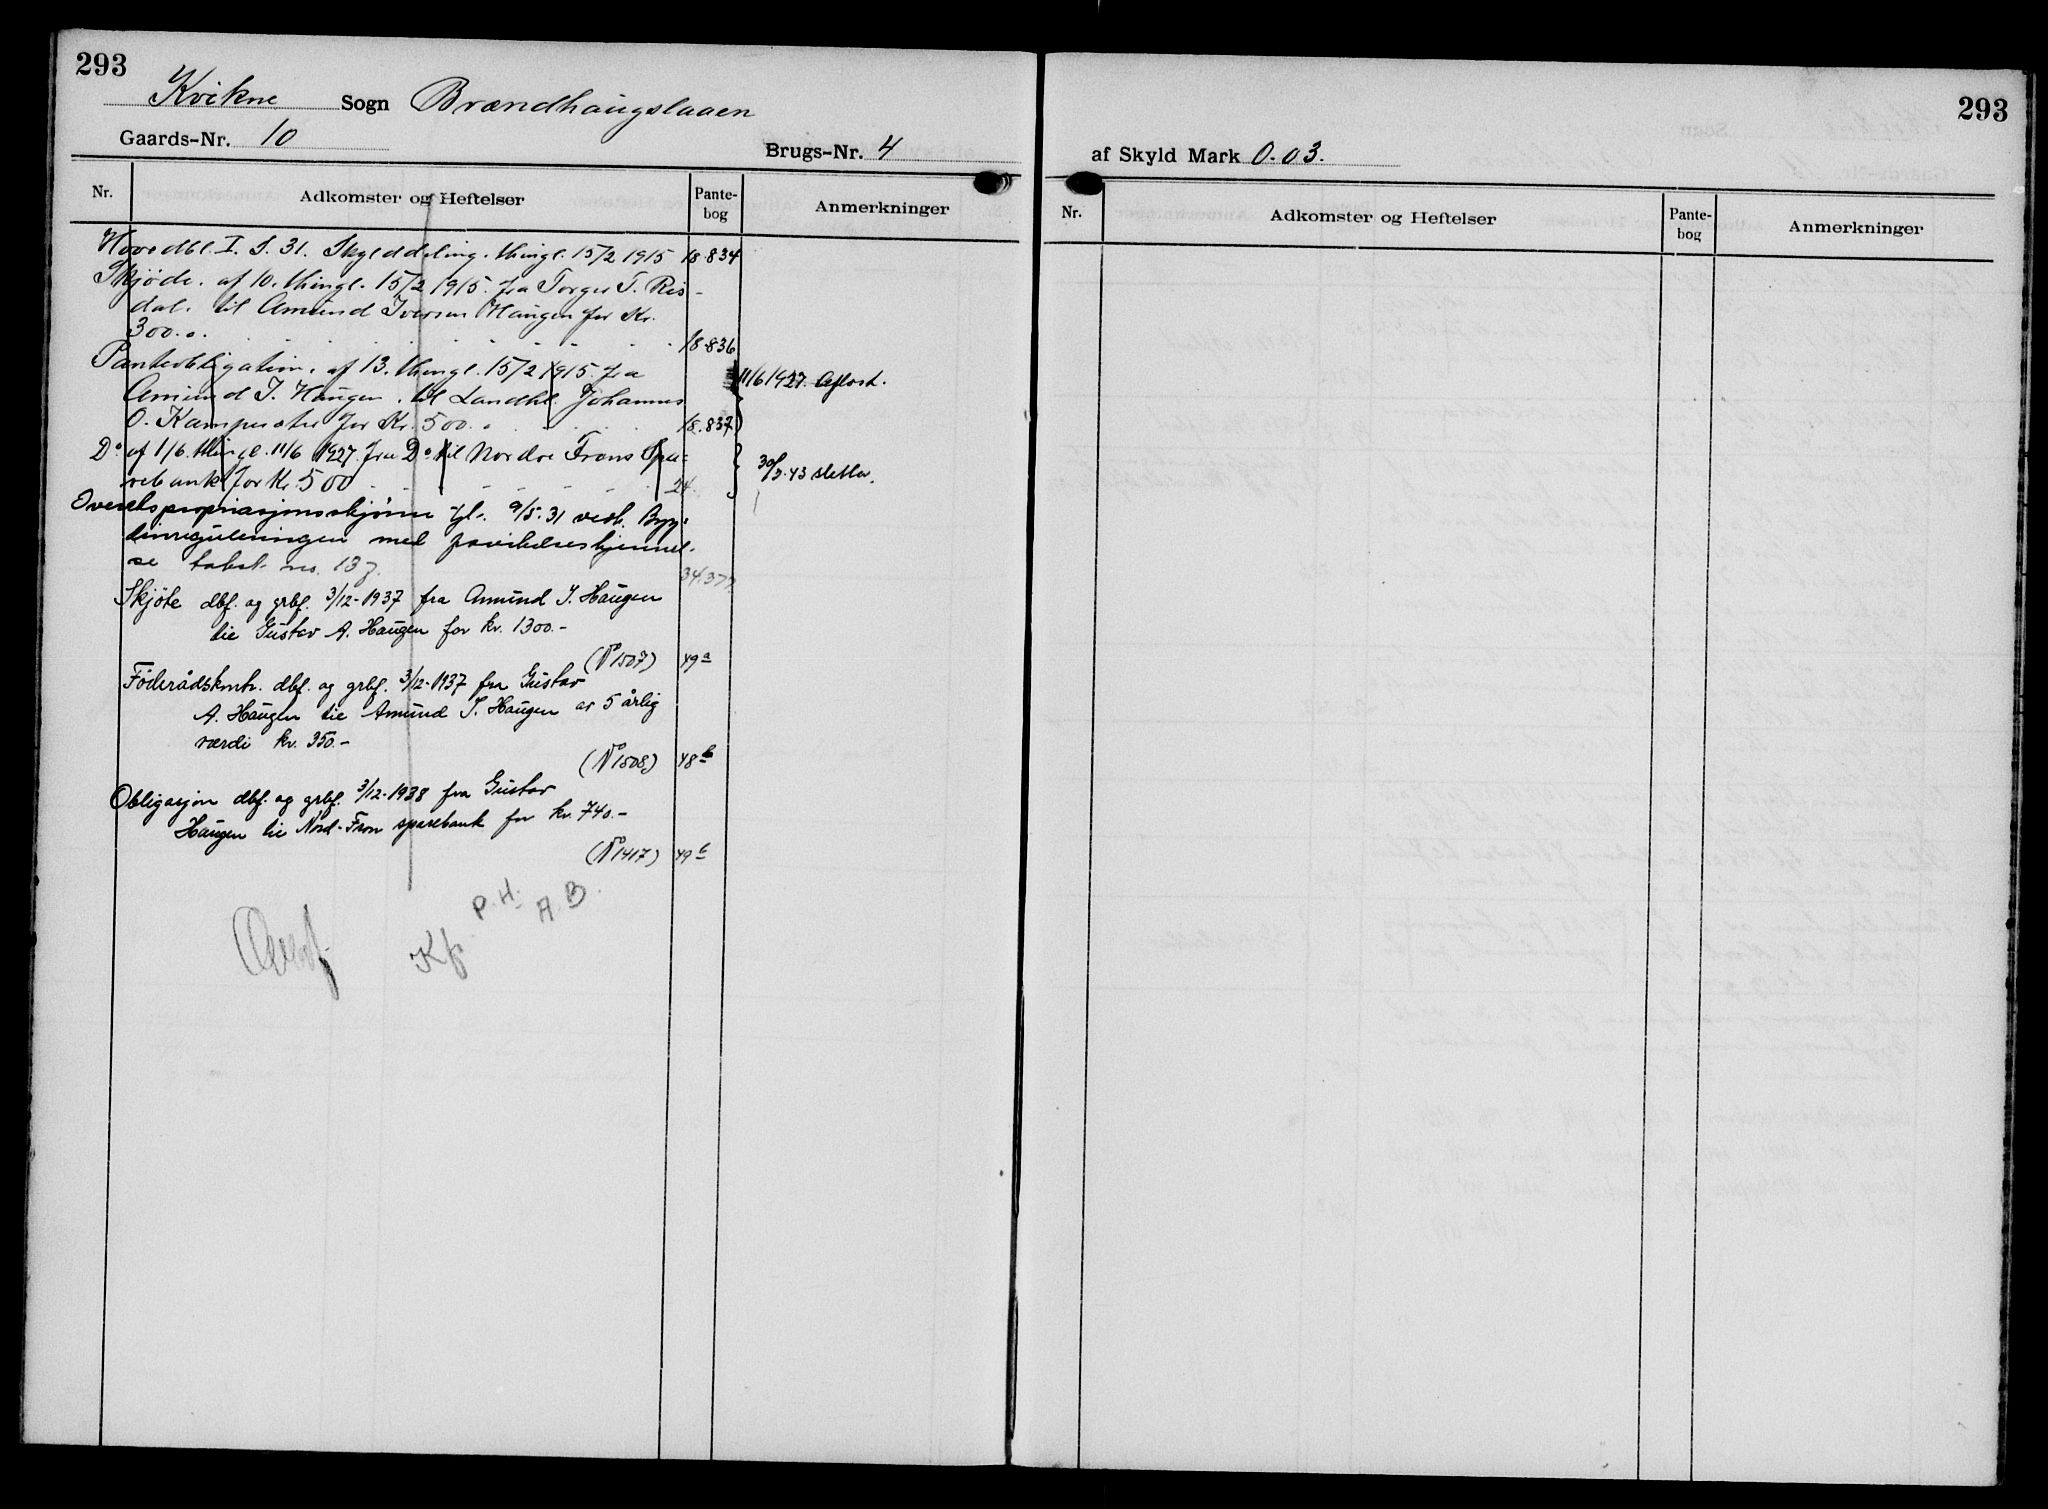 293
Kvikne Sogn Brændhaugslaaen
Gaards-Nr. 10
Brugs-Nr. 4
Nr. Adkomster og Heftelser Pante-bog Anmerkninger
Hovedbl. I. S. 31. Skylddeling. thingl. 15/2 1915 18.834
Skjøde. af 10. thingl. 15/2 1915. fra Torger T. Ris-
dal. til Amund Iversen Haugen for Kr.
300.. 18.836
Panteobligation. af 13. thingl. 15/2 1915. fra
Amund I. Haugen. til Landhl. Johannes 11/6 1927. Aflæst.
O. Kampesæter for Kr. 500. 18.837
Do af 1/6. thingl. 11/6 1927. fra Do til Nordre Frons Spa-
rebank for Kr. 500 24. 30/5.43 slettes.
Overekspropriasjonsskjønn tgl. 9/5.31 vedk. Byg-
dinreguleringen med
se takst no. 137. 34.377
Skjöte dbf. og grbf. 3/12-1937 fra Amund I. Haugen
til Gustav A. Haugen for kr. 1300.-
(No 1507) 49a
Föderådskontr. dbf. og grbf. 3/12-1937 fra Gustav
A. Haugen til Amund I. Haugen av 5 årlig
værdi kr. 350.-
(No 1508) 48b
Obligasjon dbf. og grbf. 3/12-1938 fra Gustav
Haugen til Nord-Fron sparebank for kr. 740.-
(No 1417) 49b
P.H. A.B.
Kf
293
af Skyld Mark 0.03.
Nr. Adkomster og Heftelser Pante-bog Anmerkninger